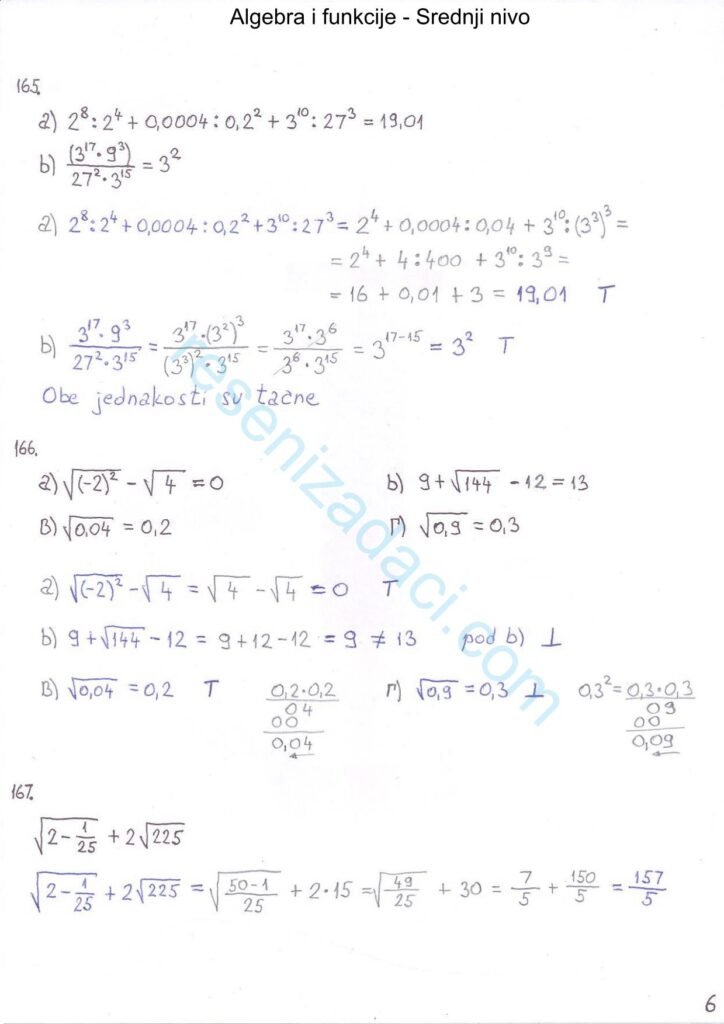 Algebra i funkcije - Srednji nivo
165.
a) 2⁸:2⁴ + 0,0004 : 0,2² + 3¹⁰ : 27³ = 19,01
b) (3¹⁷·9³)/(27²·3¹⁵) = 3²
a) 2⁸:2⁴ + 0,0004 : 0,2² + 3¹⁰ : 27³ = 2⁴ + 0,0004 : 0,04 + 3¹⁰ : (3³)³ =
= 2⁴ + 4 : 400 + 3¹⁰ : 3⁹ =
= 16 + 0,01 + 3 = 19,01 T
b) 3¹⁷·9³/27²·3¹⁵ = 3¹⁷·(3²)³/(3³)²·3¹⁵ = 3¹⁷·3⁶/3⁶·3¹⁵ = 3¹⁷⁻¹⁵ = 3² T
Obe jednakosti su tačne
166.
a) √(-2)² - √4 = 0 b) 9 + √144 - 12 = 13
в) √0,04 = 0,2 г) √0,9 = 0,3
a) √(-2)² - √4 = √4 - √4 = 0 T
b) 9 + √144 - 12 = 9 + 12 - 12 = 9 ≠ 13 pod b) ⊥
в) √0,04 = 0,2 T 0,2·0,2 г) √0,9 = 0,3 ⊥ 0,3² = 0,3·0,3
04 09
00 00
0,04 0,09
167.
√2 - 1/25 + 2√225
√2 - 1/25 + 2√225 = √50-1/25 + 2·15 = √49/25 + 30 = 7/5 + 150/5 = 157/5
resenizadaci.com
6